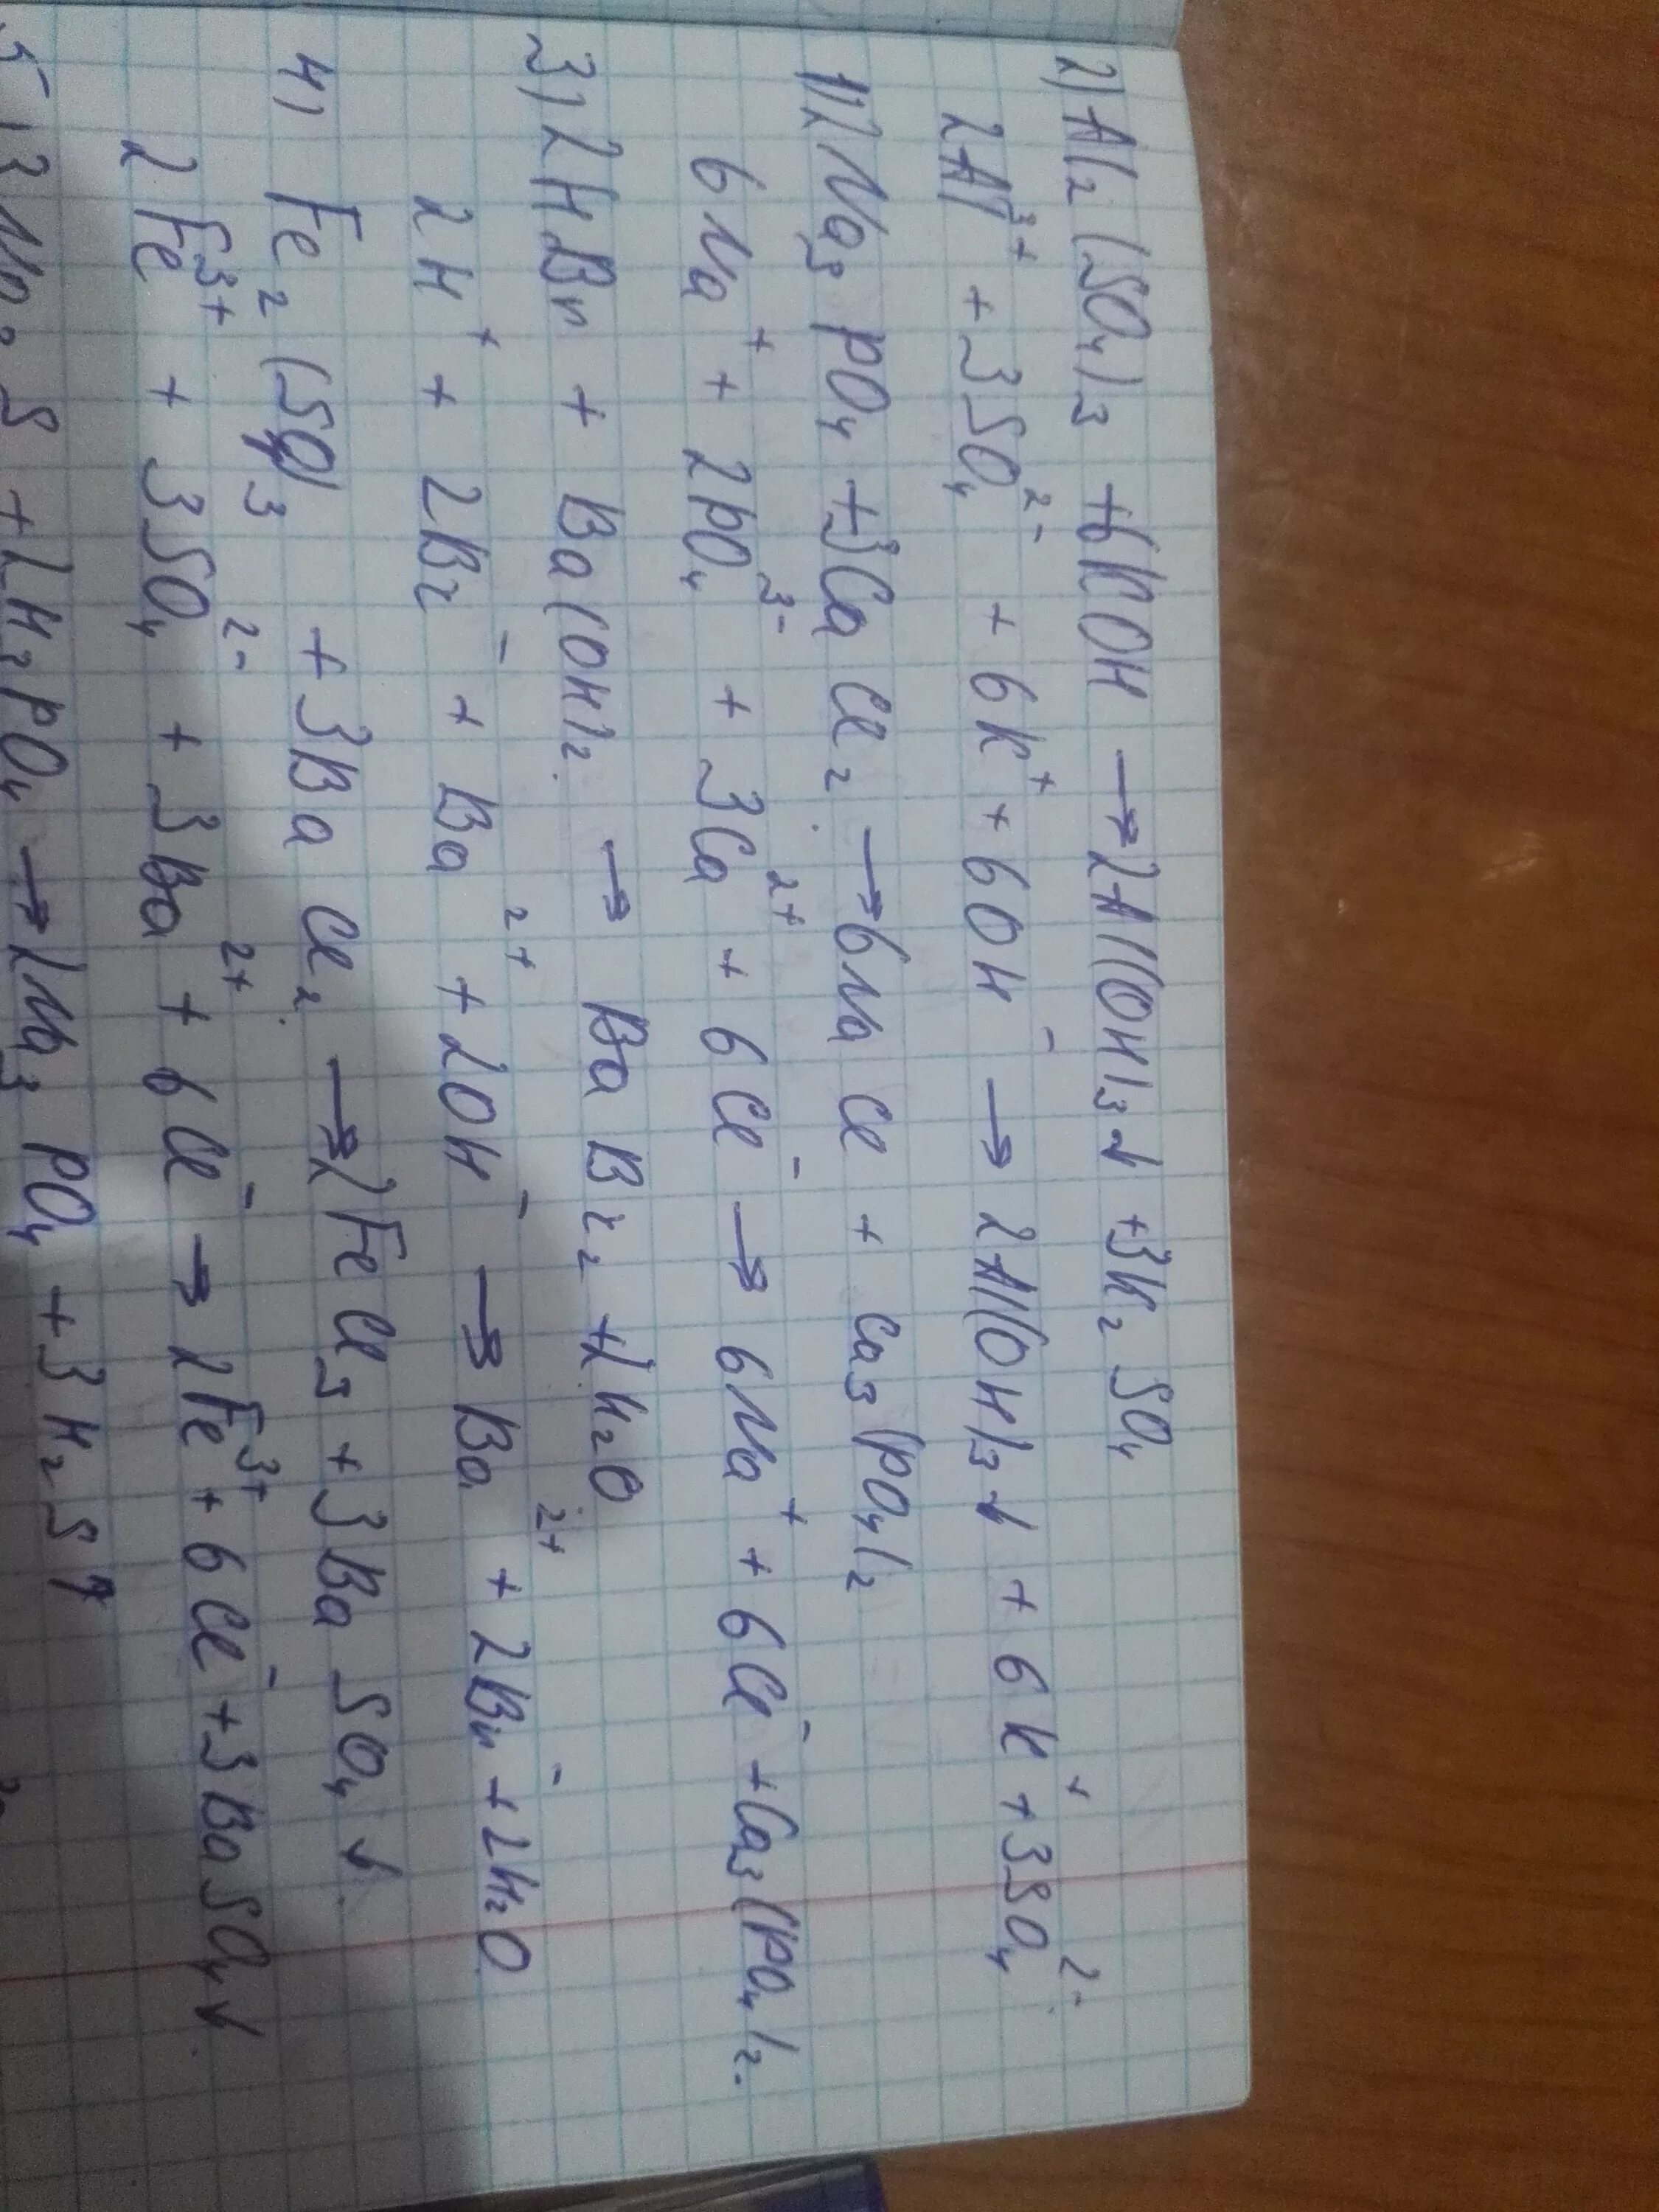 2) Al₂(SO₄)₃ +6KOH → 2Al(OH)₃↓ +3K₂SO₄
2Al³⁺ + 3SO₄²⁻ + 6K⁺ + 6OH⁻ → 2Al(OH)₃↓ + 6K⁺ + 3SO₄²⁻
1) 2Na₃PO₄ + 3CaCl₂ → 6NaCl + Ca₃(PO₄)₂
6Na⁺ + 2PO₄³⁻ + 3Ca²⁺ + 6Cl⁻ → 6Na⁺ + 6Cl⁻ + Ca₃(PO₄)₂.
3) 2HBr + Ba(OH)₂ → BaBr₂ + 2H₂O
2H⁺ + 2Br⁻ + Ba²⁺ + 2OH⁻ → Ba²⁺ + 2Br⁻ + 2H₂O
4) Fe₂(SO₄)₃ + 3BaCl₂ → 2FeCl₃ + 3BaSO₄↓
2Fe³⁺ + 3SO₄²⁻ + 3Ba²⁺ + 6Cl⁻ → 2Fe³⁺ + 6Cl⁻ + 3BaSO₄↓
5) 3Na₂S + 2H₃PO₄ → 2Na₃PO₄ + 3H₂S↑